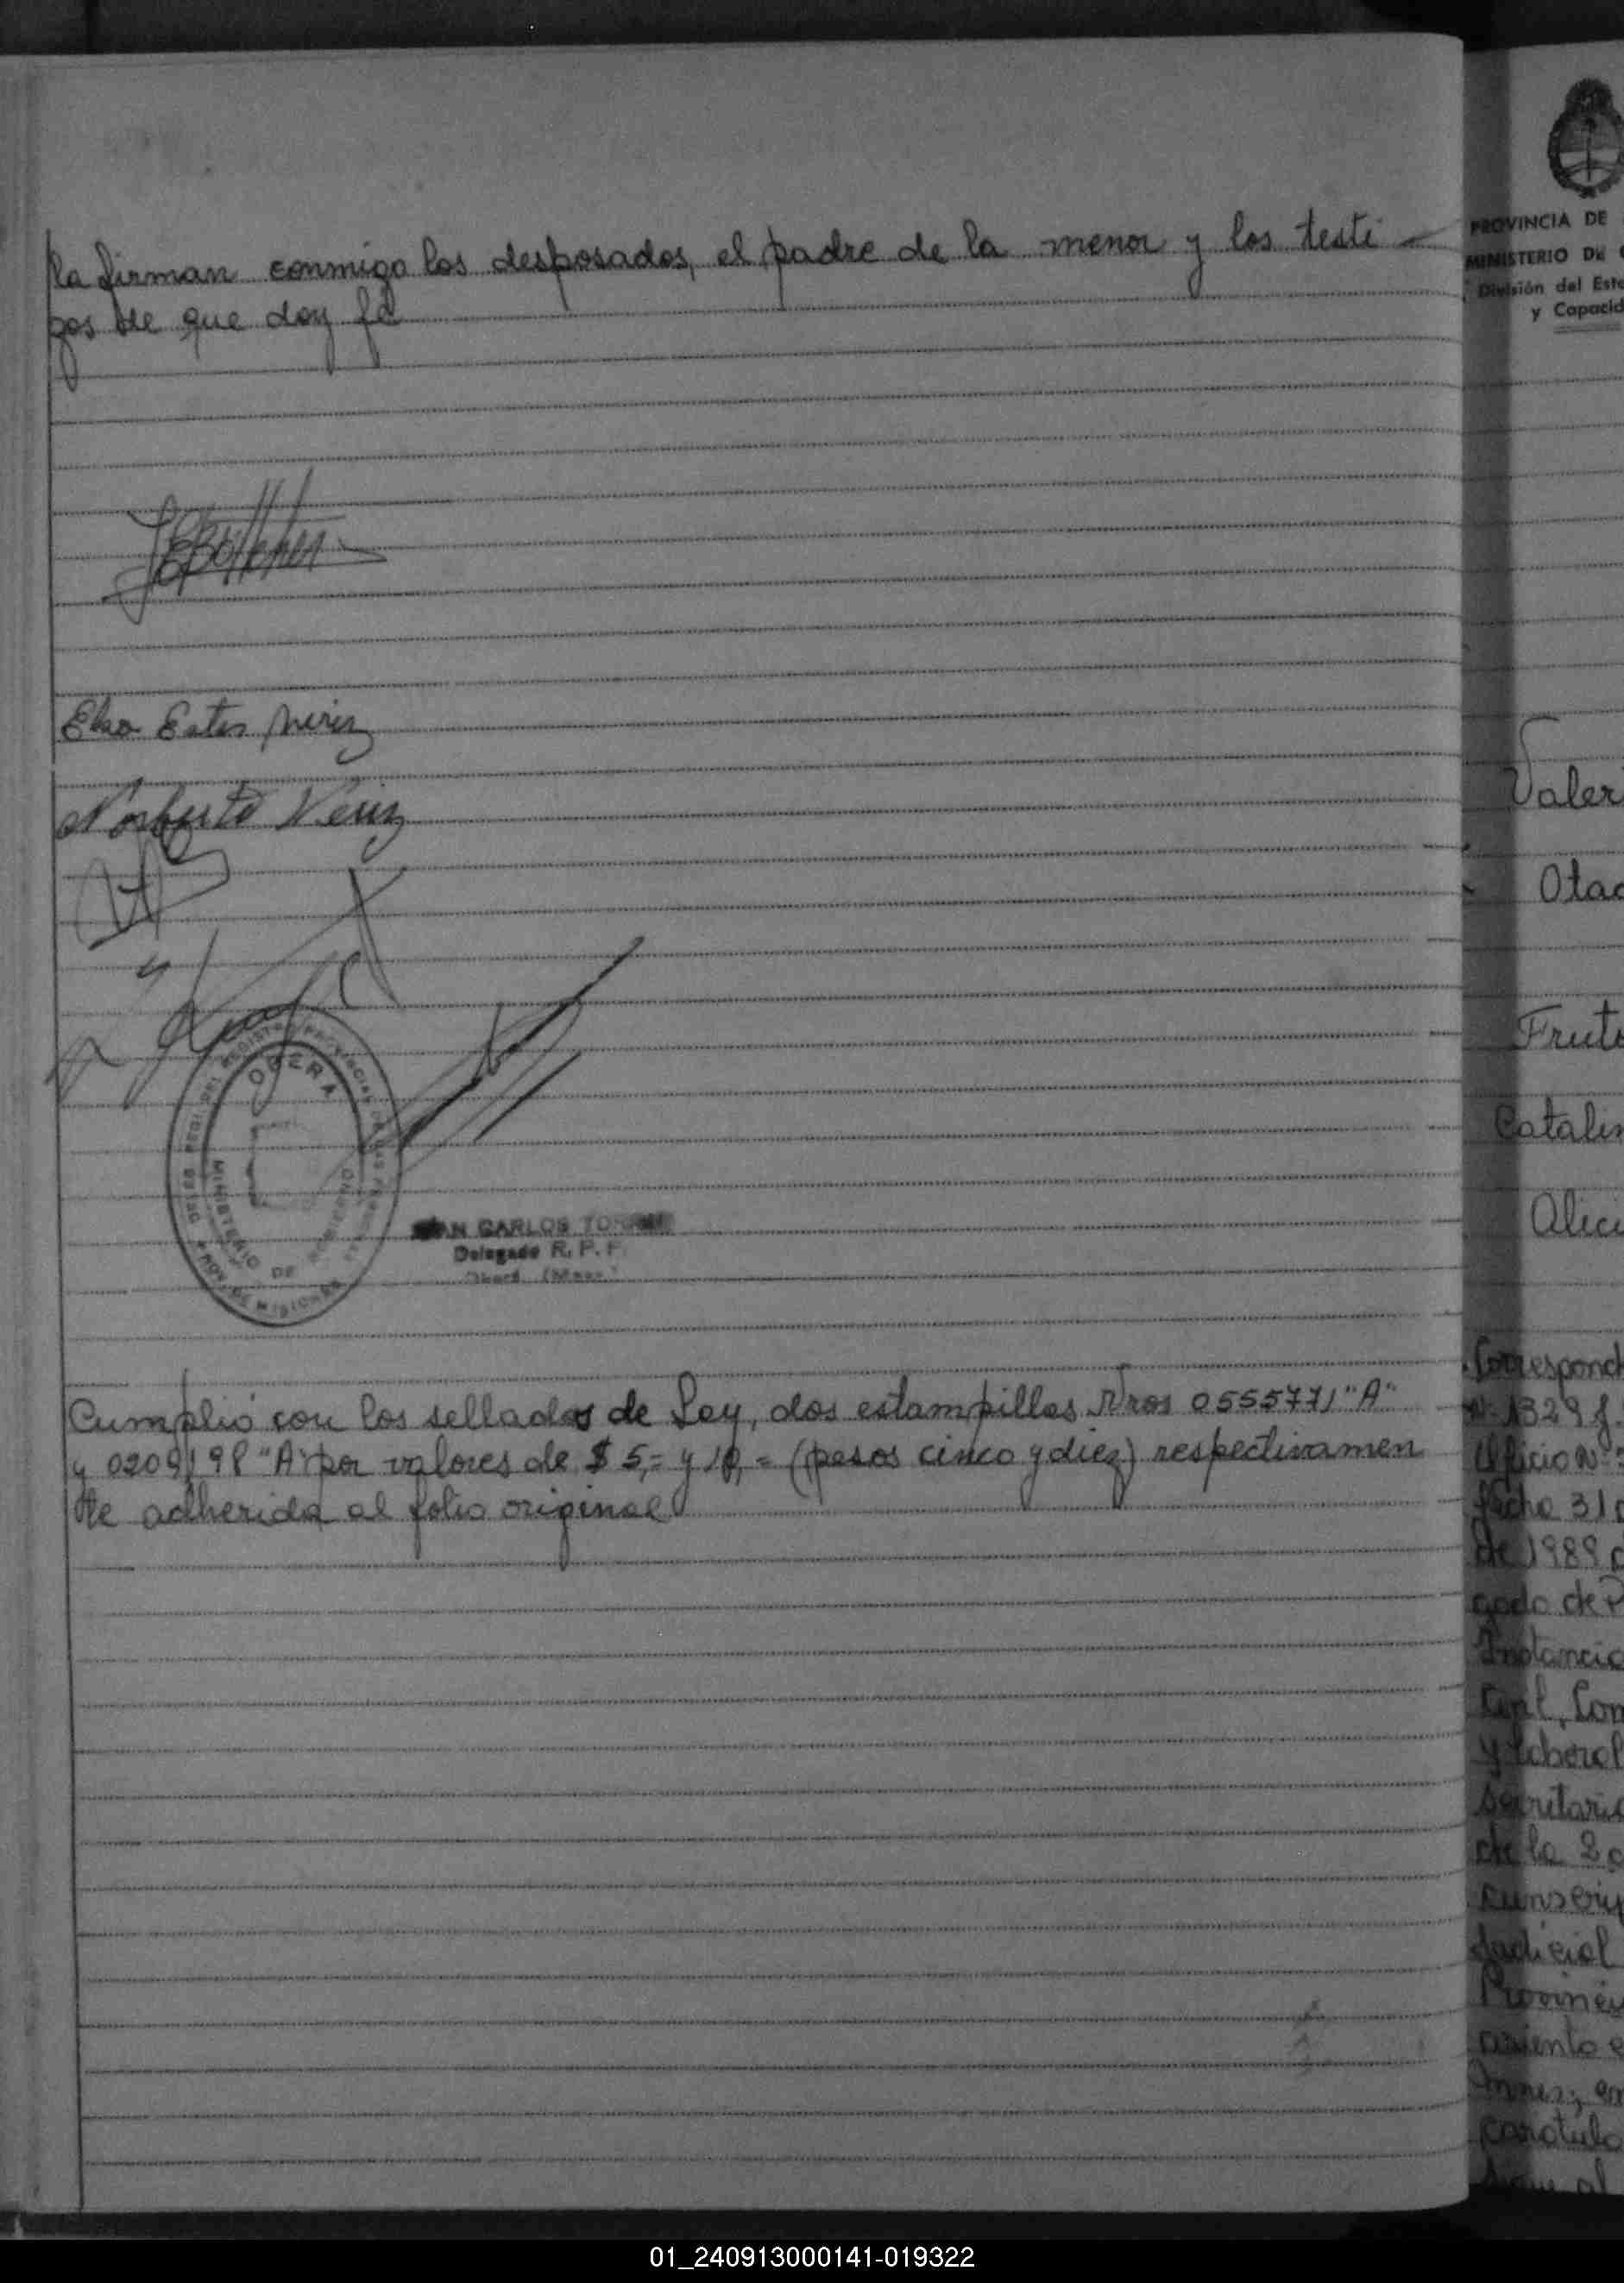 la firman conmigo los desposados, el padre de la menor y los testi
gos de que doy fé
Norberto Neriz
OBERA
MINISTERIO DE
CARLOS
Delegado R. P. P.
Cumplió con los sellados de Ley, dos estampillas Nros 0555771 "A"
y 0209198 "A" por valores de $ 5,= y 10,= (pesos cinco y diez) respectivamen
te adherida al folio original
PROVINCIA DE
MINISTERIO DE
División del Esta
y Capacid
Valeri
Otac
Fruto
Catalin
Alici
Correspond
Nº 1329 f
Oficio Nº
fecha 31
de 1989
gado de P
Instancia
Civil, Com
y Laboral
Secretaria
de la 2a
cunscrip
Judicial
Provincia
asiento e
carotula
01_240913000141-019322